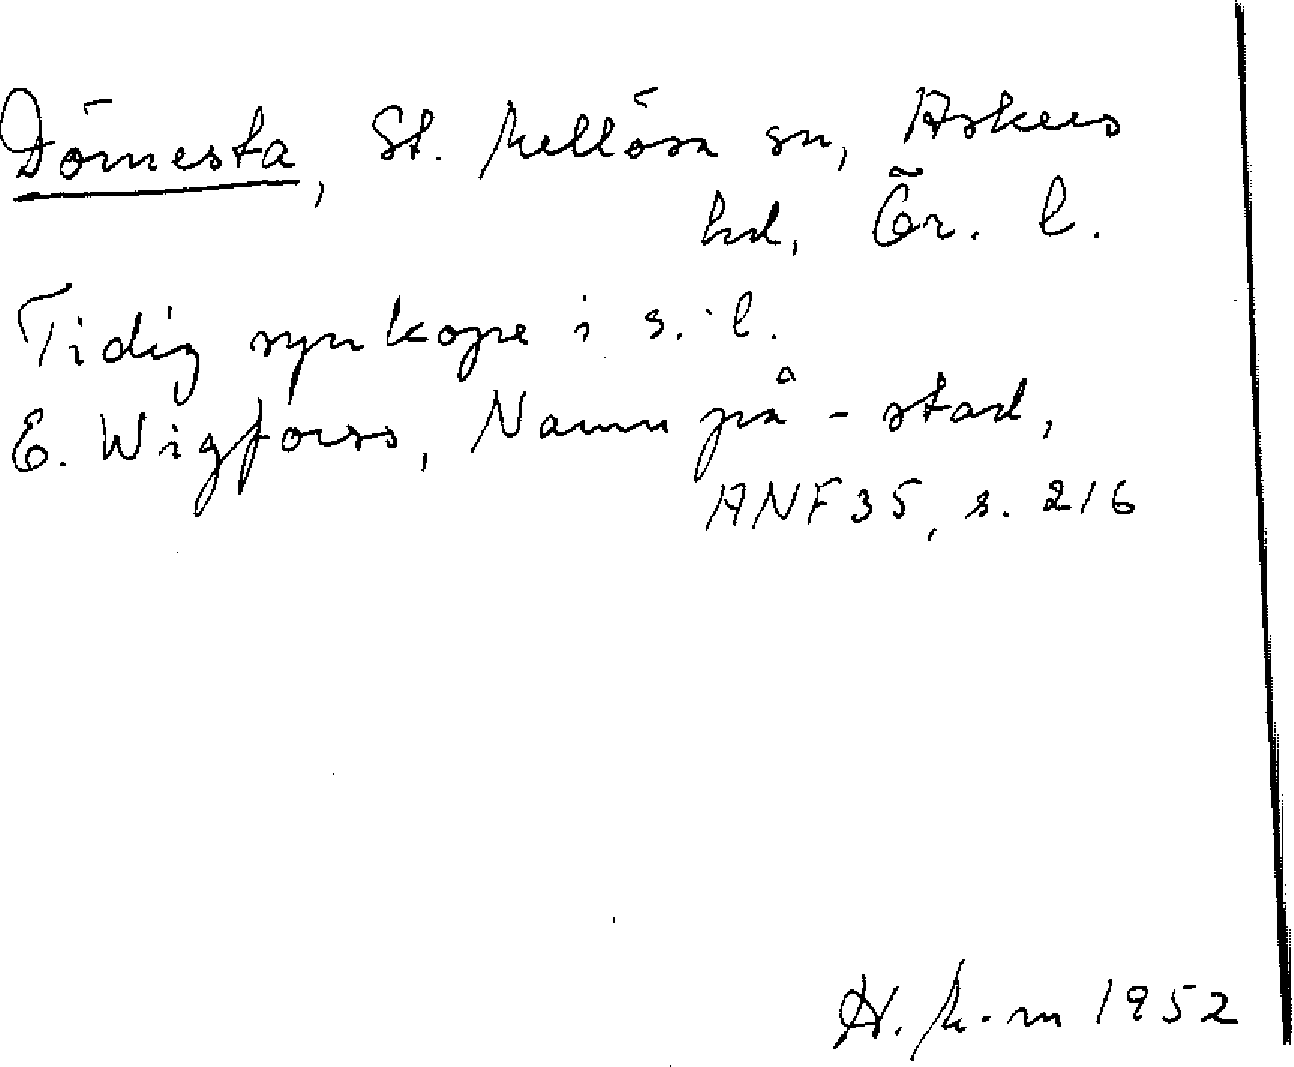 Dömesta, St. Mellösa sn, Askers
hd, Ör. l.
Tidig synkope i s. l.
E. Wigforss, Namn på -stad,
ANF 35, s. 216
H. M-m 1952